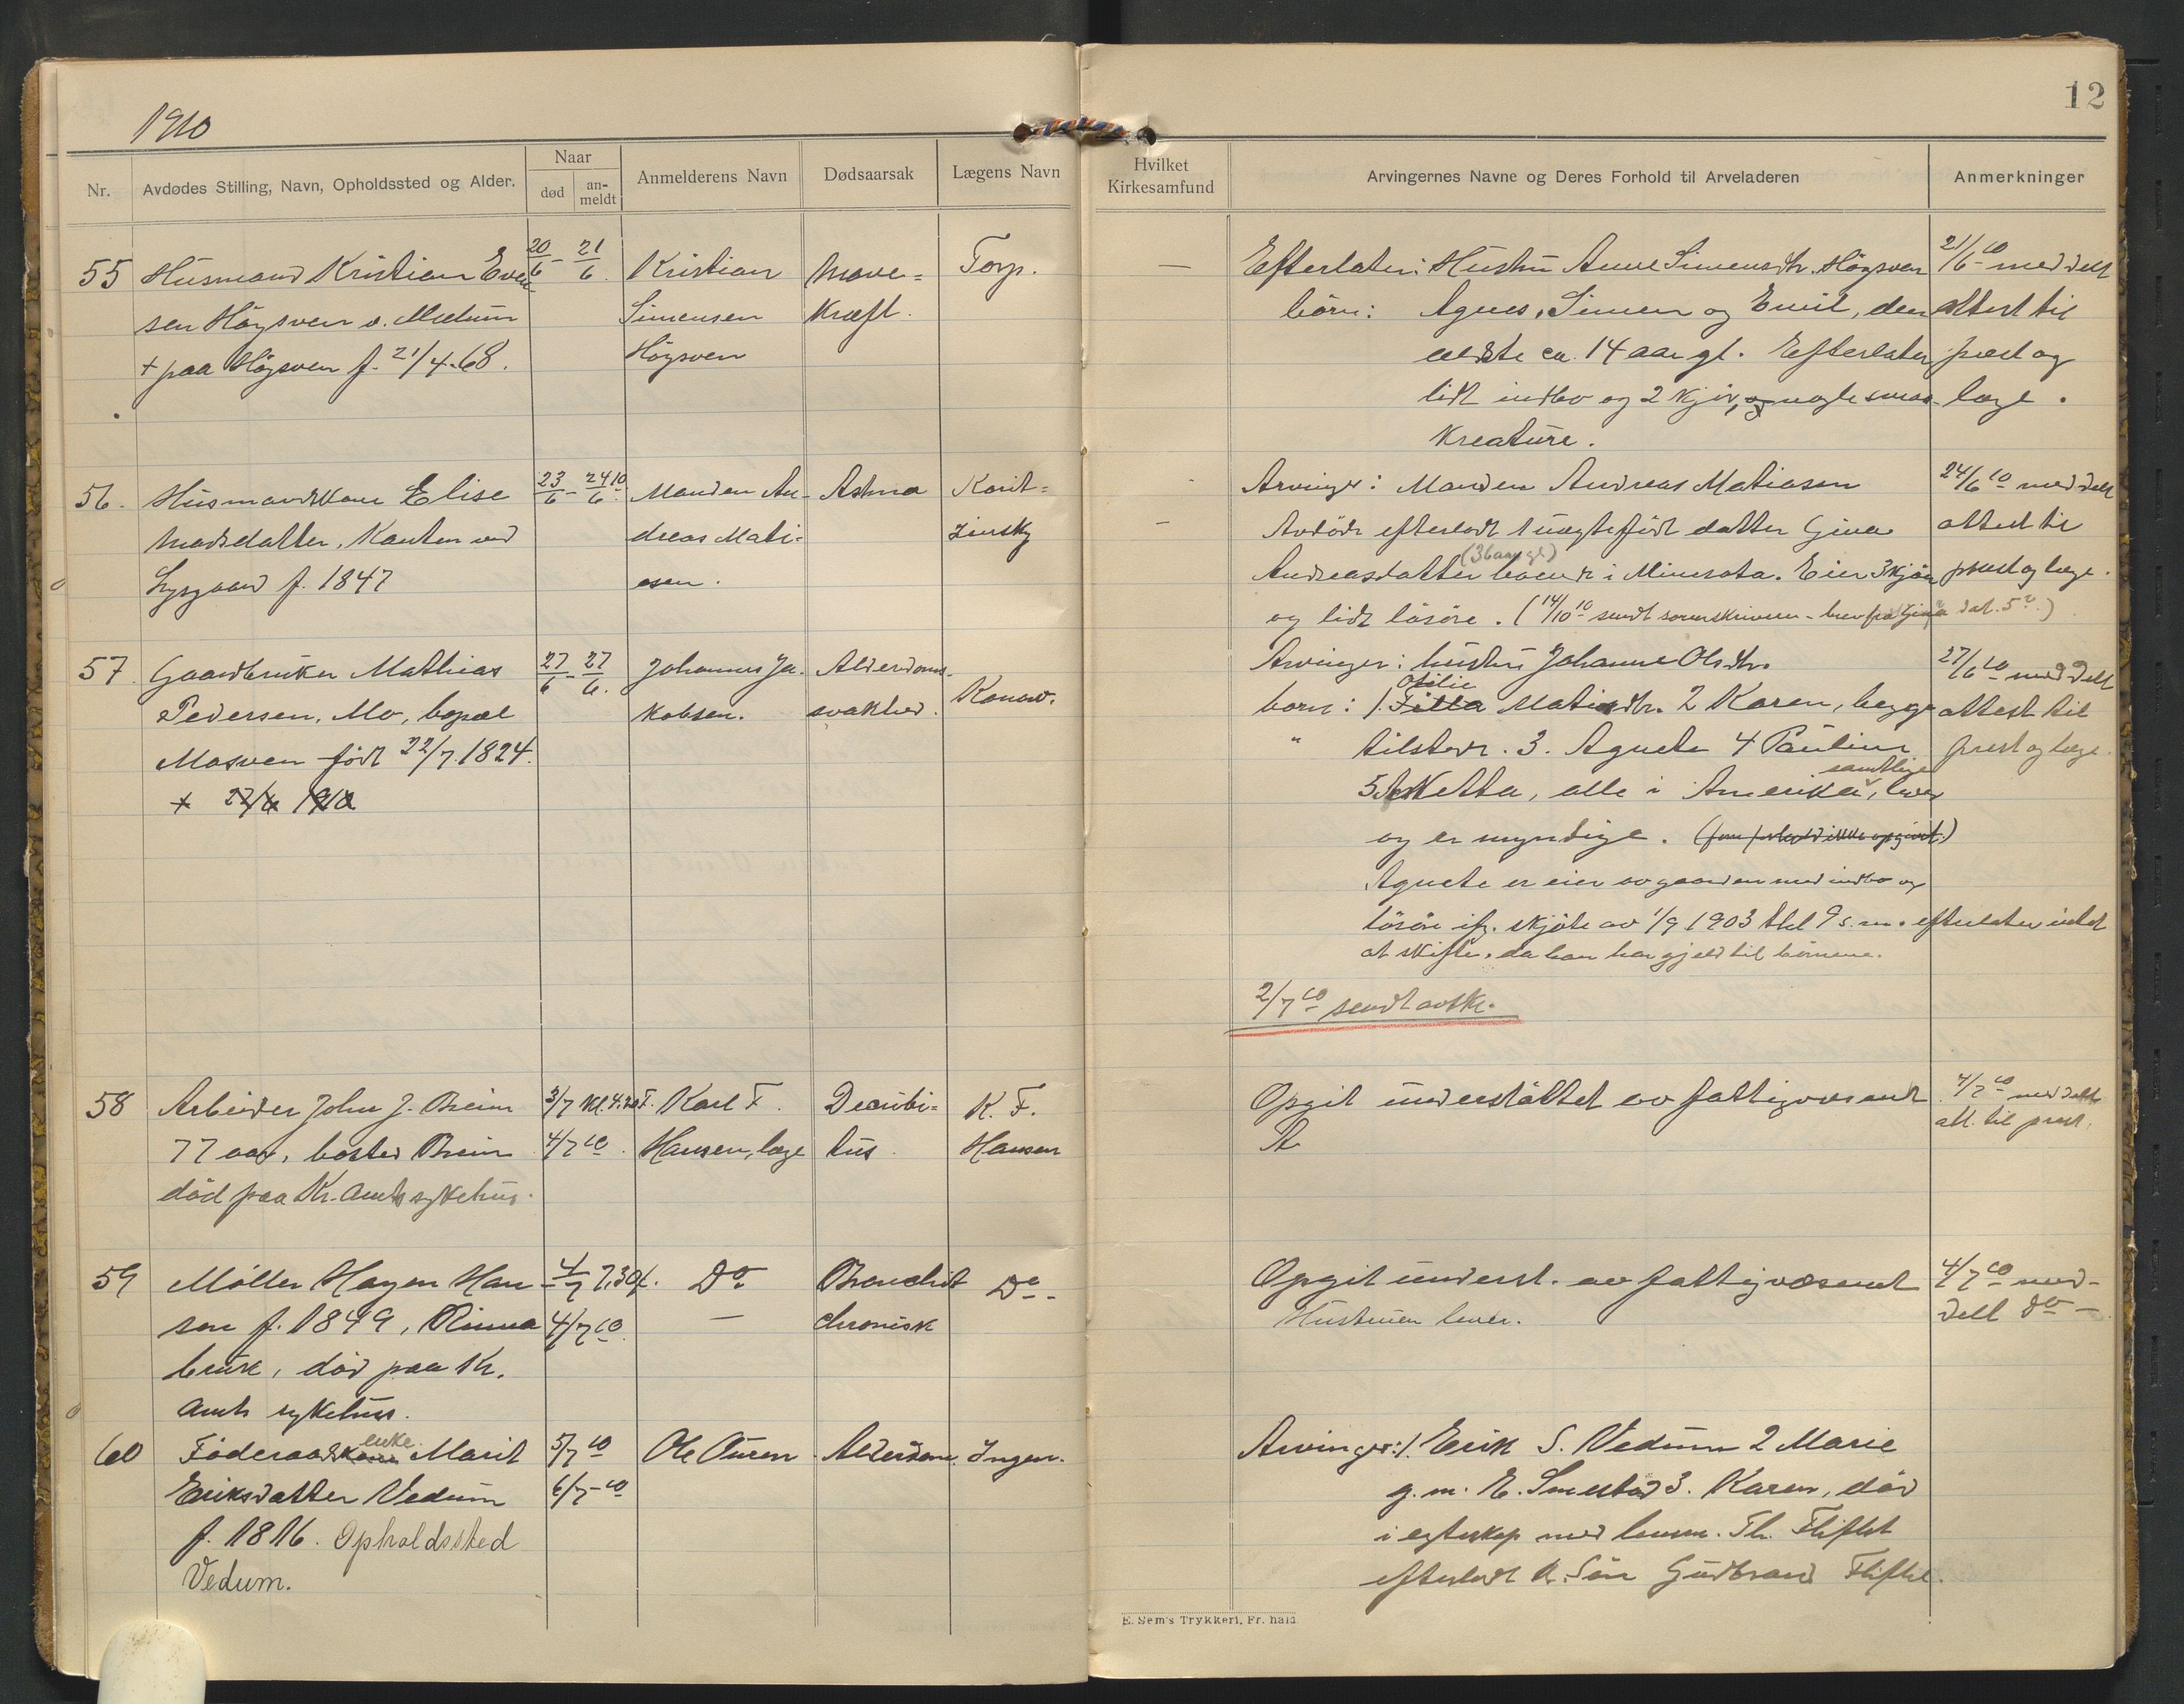 1910
12
Nr.
Avdødes Stilling, Navn, Opholdssted og Alder.
Naar
død
an-
meldt
Anmelderens Navn
Dødsaarsak
Lægens Navn
Hvilket
Kirkesamfund
Arvingernes Navne og Deres Forhold til Arveladeren
Anmerkninger
55
Husmand Kristian Even-
sen Högsveen v.
+ paa Högsveen f. 21/4-68.
20/6 - 21/6.
Kristian
Simensen
Högsveen
Mave-
kræft.
Torp.
—
Efterlater: Hustru Anne Simensdtr. Högsveen
börn: Agnes, Simen og Emil, den
ældste ca. 14 aar gl. Efterlater
lidt indbo og 2 kjör, og nogle smaa-
kreature.
21/6 10 meddelt
attest til
prest og
læge.
56.
Husmandskone Elise
Madsdatter, Kanten ved
Lysgaard f. 1847
23/6 - 24/6 10
Manden An-
dreas Mati-
asen.
Astma
Korit-
zinsky
—
Arvinger: Manden Andreas Matiasen
Avdöde efterlodt 1 uegtefödt datter Gina
(36 aar gl)
Andreasdatter boende i Minesota. Eier 3 kjör
og lidt lösöre. (14/10 10 sendt sorenskriveren - brev fra Gina dat.
24/6 10 meddelt
attest til
prest og læge.
57.
Gaardbruker Mathias
Pedersen, Mo, bopæl
Mosveen födt 22/7 1824.
+ 27/6 1910
27/6 - 27/6.
Johannes Ja-
kobsen.
Alderdoms-
svakhed.
Konow.
Arvinger: hustru Johanne Olsdtr.
Otilie
born: 1. Tilla Matiasdtr. 2 Karen, begge
" tilstede. 3. Agnete 4 Pauline
samtlige
5 Netta, alle i Amerika, lever
og er myndige. (
ikke opgivet.)
Agnete er eier av gaarden med indbo og
lösöre ifg. skjöte av 1/9 1903 thl 9 s.m. efterlater intet
at skifte, da han har gjeld til börnene.
2/7 10 sendt avskr.
27/6 10 meddelt
attest til
prest og læge.
58
Arbeider John J. Breim
77 aar, bosted Breim
död paa Kr. amts sykehus.
3/7 Kl. 4.20 F.
4/7 10.
Karl F.
Hansen, læge
Decubi-
tus.
K. F.
Hansen
Opgit understöttet av fattigvæsenet
4/7 10 meddelt
att. til prest.
59
Möller Hagen Han-
sen f. 1849, Rinna
bruk, död paa Kr.
amts sykehus.
4/7 7,30 f.
4/7 10.
Do
—
Bronchit
chronisk
Do -
Opgit underst. av fattigvæsenet
Hustruen lever.
4/7 10 med-
delt do -
60
enke
Föderaadskone Marit
Eriksdatter Vedum
f. 1816. Opholdssted
Vedum.
5/7 10
6/7 - 10
Ole Öuren
Alderdom.
Ingen.
Arvinger: 1. Erik S. Vedum 2 Marie
g. m. E. Smestad 3. Karen, död
i egteskap med lensm. Th. Fliflet
efterlodt 1 sön Gudbrand Fliflet.
E. Sem's Trykkeri, Fr.hald